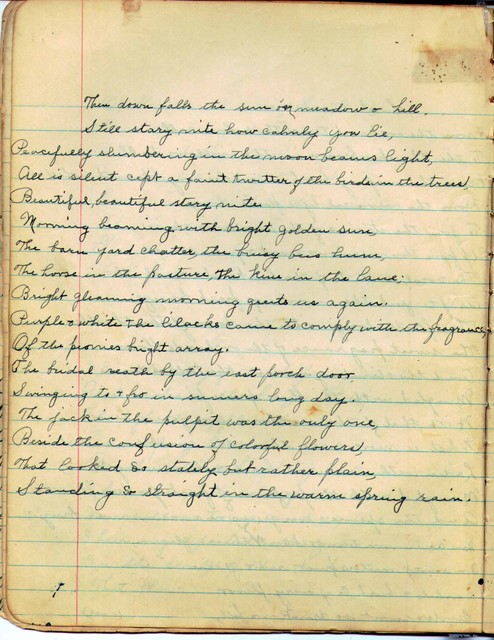 Then down falls the sun on meadow & hill.
Still stary nite how calmly you lie,
Peacefully slumbering in the moon beames light,
All is silent cept a faint twitter of the birds in the trees,
Beautiful, beautiful stary nite
Morning beaming with bright golden sun,
The barn yard chatter, the buisy bees hum,
The horse in the pasture, the kine in the lane;
Bright gleaming morning greets us again.
Purple & white the lilacks came to comply with the fragrance,
Of the peonies bright array.
The bridal reath by the east porch door,
Swinging to & fro in sumers long day.
The jack in the pulpit was the only one,
Beside the confusion of colorful flowers,
That looked so stately, but rather plain,
Standing so straight in the warm spring rain.